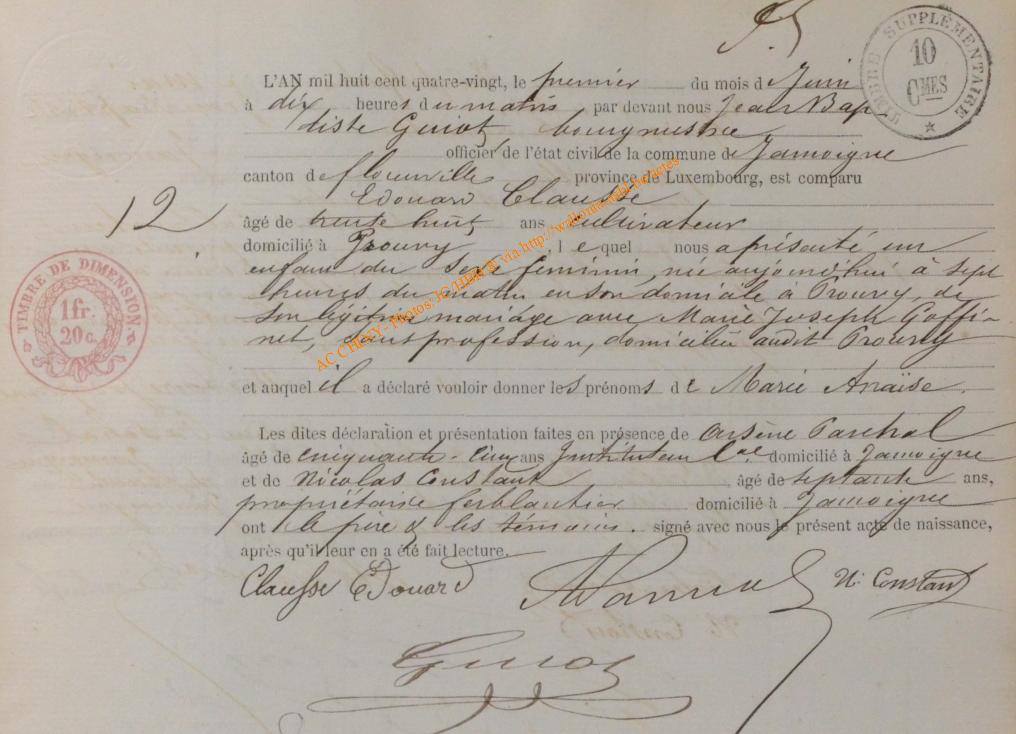 TIMBRE SUPPLÉMENTAIRE
10
CMES
L'AN mil huit cent quatre-vingt, le premier du mois de Juin
à dix heures du matin, par devant nous Jean Bap
tiste Guiot bourgmestre
officier de l'état civil de la commune de Jamoigne
canton de florenville province de Luxembourg, est comparu
Edouard Clausse
12
âgé de trente huit ans cultivateur
domicilié à Prouvy, lequel nous a présenté un
enfant du sexe feminin, née aujourd'hui à sept
heures du matin en son domicile à Prouvy, de
son légitime mariage avec Marie Joseph Goffi-
net, sans profession, domiciliée audit Prouvy
TIMBRE DE DIMENSION.
1fr.
20c.
et auquel il a déclaré vouloir donner les prénoms de Marie Anaïse.
Les dites déclaration et présentation faites en présence de Arsène Paschal
âgé de cinquante-cinq ans Instituteur Cal. domicilié à Jamoigne
et de Nicolas Constant, âgé de septante ans,
propriétaire ferblantier domicilié à Jamoigne
ont le père & les témoins. signé avec nous le présent acte de naissance,
après qu'il leur en a été fait lecture.
Clausse Edouard
N: Constant
Guiot
AC CHINY - Photos JC/HHR © via http://